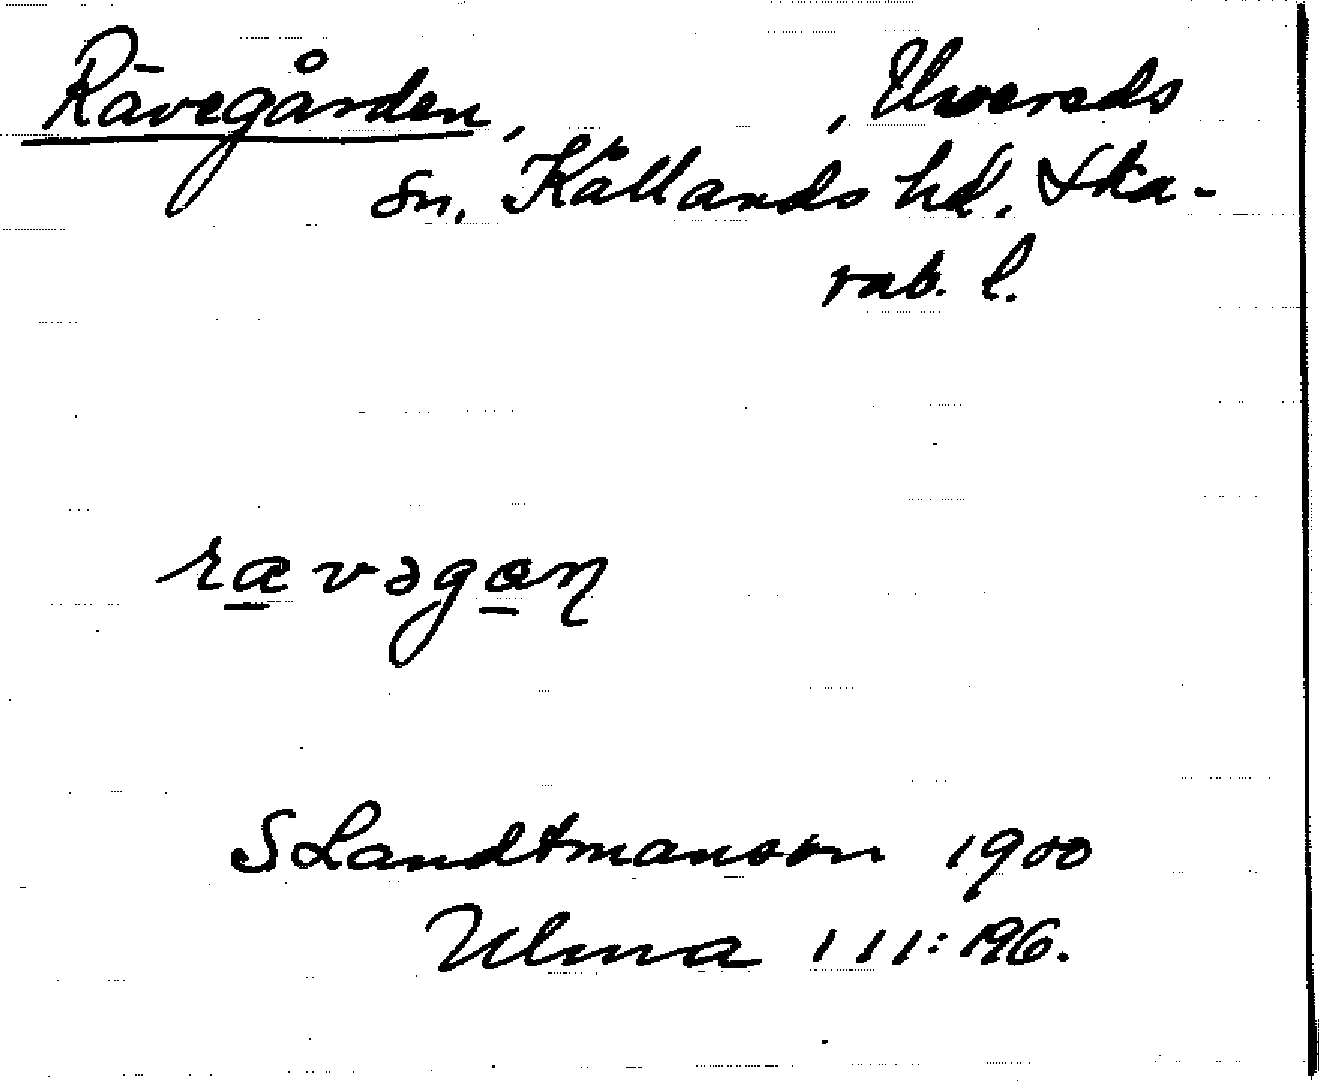 Rävegården, , Uvereds
sn. Kållands hd. Ska-
rab. l.
rævəgan
S Landtmanson 1900
Ulma 111:196.